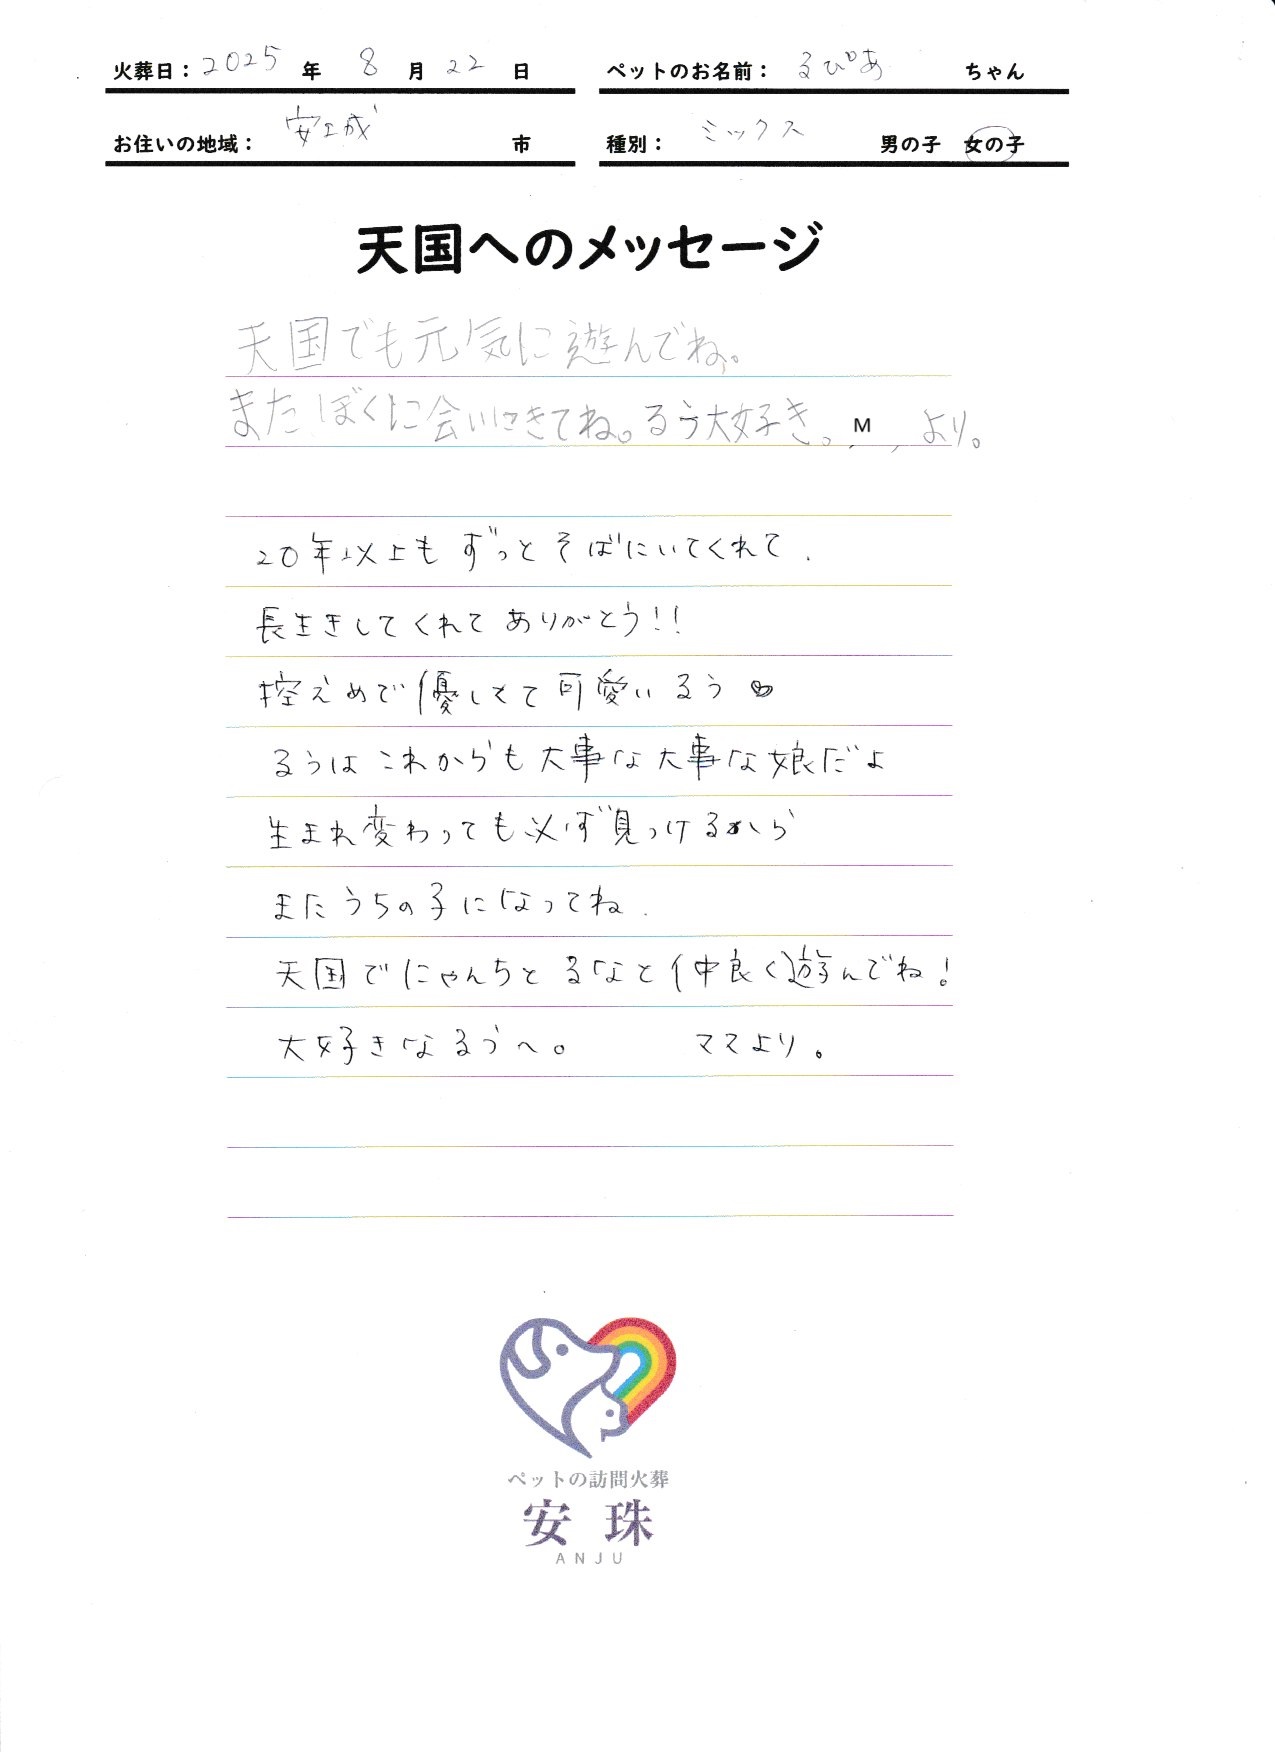 火葬日：2025 年 8 月 22 日
ペットのお名前： るぴあ ちゃん
お住いの地域： 安城 市
種別： ミックス 男の子 女の子
天国へのメッセージ
天国でも元気に遊んでね。
またぼくに会いにきてね。るう大好き。M より。
20年以上もずっとそばにいてくれて.
長生きしてくれてありがとう!!
控えめで優しくて可愛いるう♡
るうはこれからも大事な大事な娘だよ
生まれ変わっても必ず見つけるから
またうちの子になってね.
天国でにゃんちとるなと仲良く遊んでね!
大好きなるうへ。 ママより。
ペットの訪問火葬
安珠
ANJU